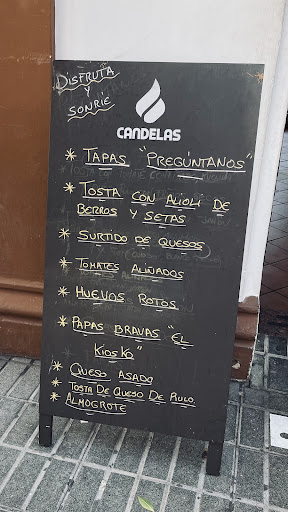 DISFRUTA
Y
SONRIE
CANDELAS
* TAPAS "PREGÚNTANOS"
* TOSTA CON ALIOLI DE
BERROS Y SETAS
* SURTIDO DE QUESOS
* TOMATES ALIÑADOS
* HUEVOS ROTOS
* PAPAS BRAVAS "EL
KIOSKO"
* QUESO ASADO
* TOSTA DE QUESO DE AULO
* ALMOGROTE